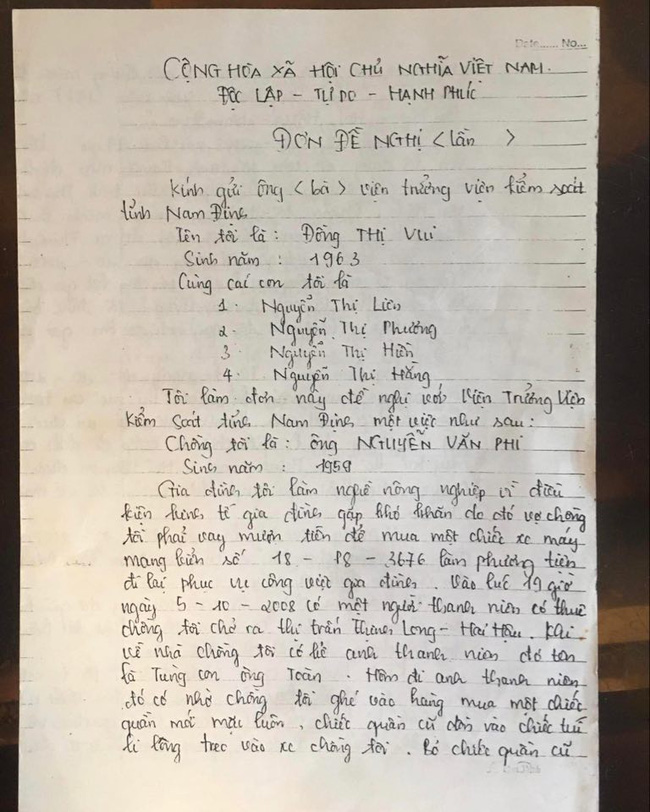 Date...... No...
CỘNG HÒA XÃ HỘI CHỦ NGHĨA VIỆT NAM.
ĐỘC LẬP - TỰ DO - HẠNH PHÚC
ĐƠN ĐỀ NGHỊ <lần >
Kính gửi ông <bà> viện trưởng viện kiểm soát
tỉnh Nam Định
Tên tôi là : ĐỒNG THỊ VUI
Sinh năm : 1963
Cùng các con tôi là
1. Nguyễn Thị Liên
2. Nguyễn Thị Phương
3 Nguyễn Thị Hiền
4. Nguyễn Thị Hằng
Tôi làm đơn này đề nghị với Viện Trưởng Viện
Kiểm Soát tỉnh Nam Định một việc như sau:
Chồng tôi là : ông NGUYỄN VĂN PHI
Sinh năm : 1959
Gia đình tôi làm nghề nông nghiệp vì điều
kiện kinh tế gia đình gặp khó khăn do đó vợ chồng
tôi phải vay mượn tiền để mua một chiếc xe máy
mang biển số 18 - P8 - 3676 làm phương tiện
đi lại phục vụ công việc gia đình. Vào lúc 19 giờ
ngày 5 - 10 - 2008 có một người thanh niên có thuê
chồng tôi chở ra thị trấn Thịnh Long - Hải Hậu. Khi
về nhà chồng tôi có kể anh thanh niên đó tên
là Tùng con ông Toàn. Hôm đi anh thanh niên
đó có nhờ chồng tôi ghé vào hàng mua một chiếc
quần mới mặc luôn, chiếc quần cũ dồn vào chiếc túi
li lông treo vào xe chồng tôi. Bỏ chiếc quần cũ